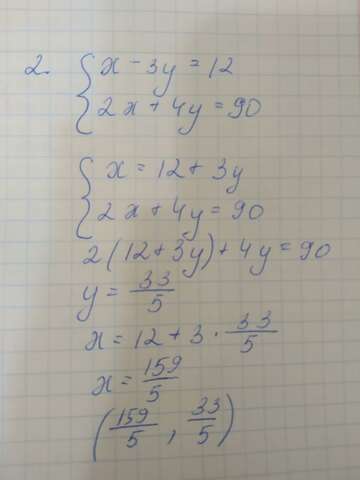 2. { x - 3y = 12
2x + 4y = 90
{ x = 12 + 3y
2x + 4y = 90
2(12 + 3y) + 4y = 90
y = 33/5
x = 12 + 3 · 33/5
x = 159/5
(159/5, 33/5)